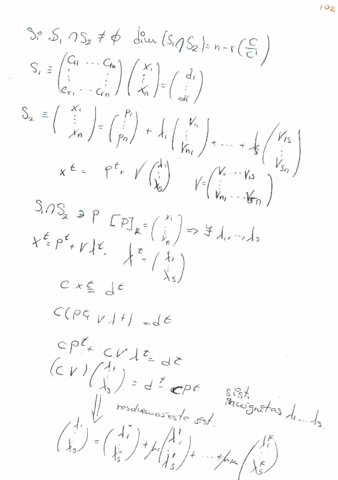 102
Si S₁ ∩ S₂ ≠ ∅ dim (S₁∩S₂) = n - r (C / C')
S₁ ≡ (C₁₁ ... C₁ₙ ⋮ Cᵣ₁ ... Cᵣₙ) (x₁ ⋮ xₙ) = (d₁ ⋮ dᵣ)
S₂ ≡ (x₁ ⋮ xₙ) = (p₁ ⋮ pₙ) + λ₁ (V₁₁ ⋮ Vₙ₁) + ... + λₛ (V₁ₛ ⋮ Vₛₙ)
xᵗ = pᵗ + V (λ₁ ⋮ λₛ) V = (V₁₁ ... V₁ₛ ⋮ Vₙ₁ ... Vₛₙ)
S₁∩S₂ ∋ P [P]_R = (x₁ ⋮ xₙ) ⇒ ∃ λ₁,...,λₛ
xᵗ = pᵗ + Vλᵗ. λᵗ = (λ₁ ⋮ λₛ)
C xᵗ = dᵗ
C(pᵗ + Vλᵗ) = dᵗ
Cpᵗ + CVλᵗ = dᵗ
(CV) (λ₁ ⋮ λₛ) = dᵗ - Cpᵗ sist. incógnitas λ₁...λₛ.
⇓ resolvemos este sist.
(λ₁ ⋮ λₛ) = (λ₁⁰ ⋮ λₛ⁰) + μ₁ (λ₁¹ ⋮ λₛ¹) + ... + μₖ (λ₁ᵏ ⋮ λₛᵏ)